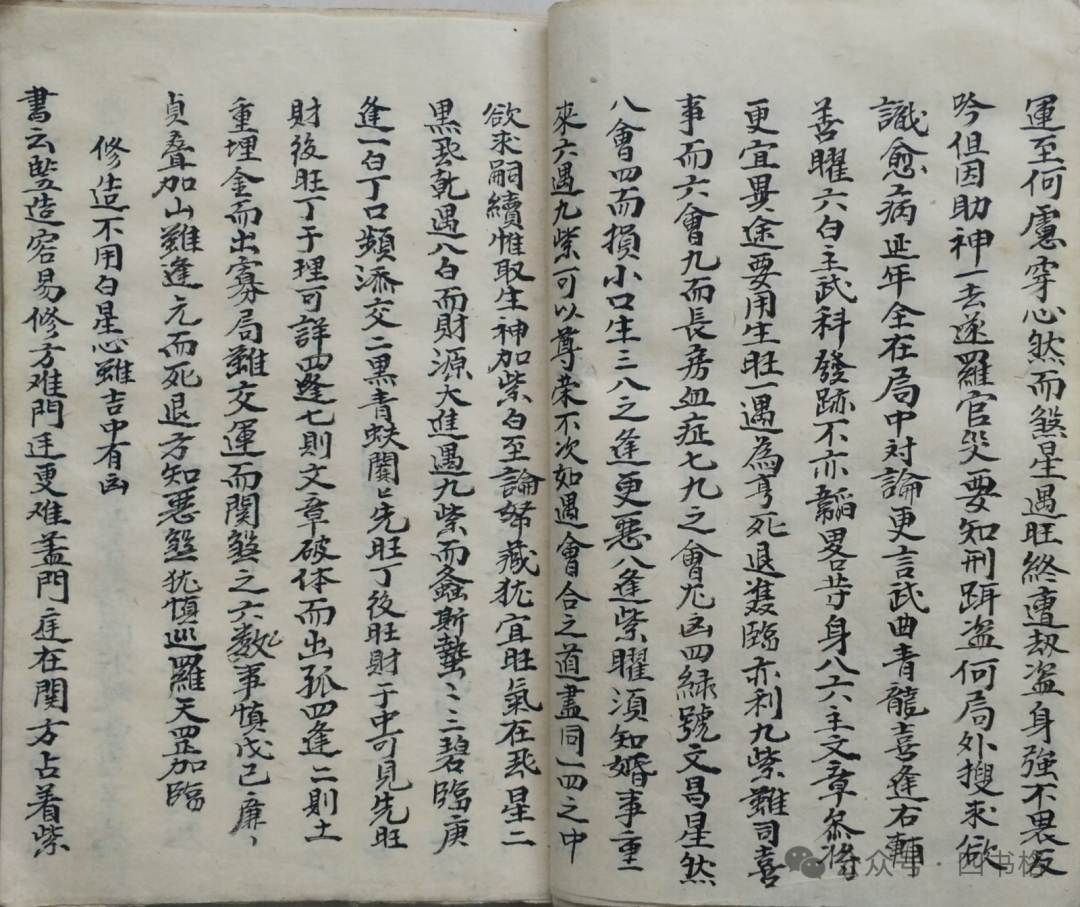 運至何慮穿心然而煞星遇旺終遭劫盗身強不畏反
吟但因助神一去遂羅官災要知刑弭盗何局外搜求欲
識愈病延年全在局中対論更言武曲青龍喜逢右輔
善曜六白主武科發跡不亦韜畧荣身八六主文章
更宜異途要用生旺一遇為亨死退雙臨亦利九紫雖司喜
事而六會九而長房血症七九之會尤凶四綠號文昌星然
八會四而損小口生三八之逢更惡八逢紫曜須知婚事重
來六遇九紫可以尊荣不次如遇會合之道盡同一四之中
欲求嗣續惟取生神加紫白至論帑藏犹宜旺氣在飛星二
黑飛乾遇八白而財源大進遇九紫而螽斯蟄〻三碧臨庚
逢一白丁口頻添交二黒青蚨闐〻先旺丁後旺財于中可見先旺
財後旺丁于理可詳四逢七則文章破体而出孤四逢二則土
重埋金而出寡局雖交運而関煞之六数事慎戊己廉
貞叠加山雖逢元而死退方知惡煞犹慎巡羅天罡加臨
修造不用白星忌雖吉中有凶
書云竪造容易修方难門迬更难蓋門庭在関方占着紫
四书格